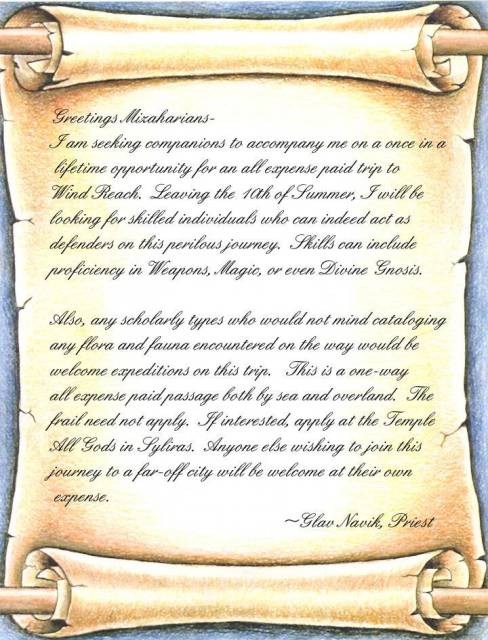 Greetings Mizaharians-
I am seeking companions to accompany me on a once in a
lifetime opportunity for an all expense paid trip to
Wind Reach. Leaving the 10th of Summer, I will be
looking for skilled individuals who can indeed act as
defenders on this perilous journey. Skills can include
proficiency in Weapons, Magic, or even Divine Gnosis.
Also, any scholarly types who would not mind cataloging
any flora and fauna encountered on the way would be
welcome expeditions on this trip. This is a one-way
all expense paid passage both by sea and overland. The
frail need not apply. If interested, apply at the Temple
All Gods in Syliras. Anyone else wishing to join this
journey to a far-off city will be welcome at their own
expense.
~Glav Navik, Priest